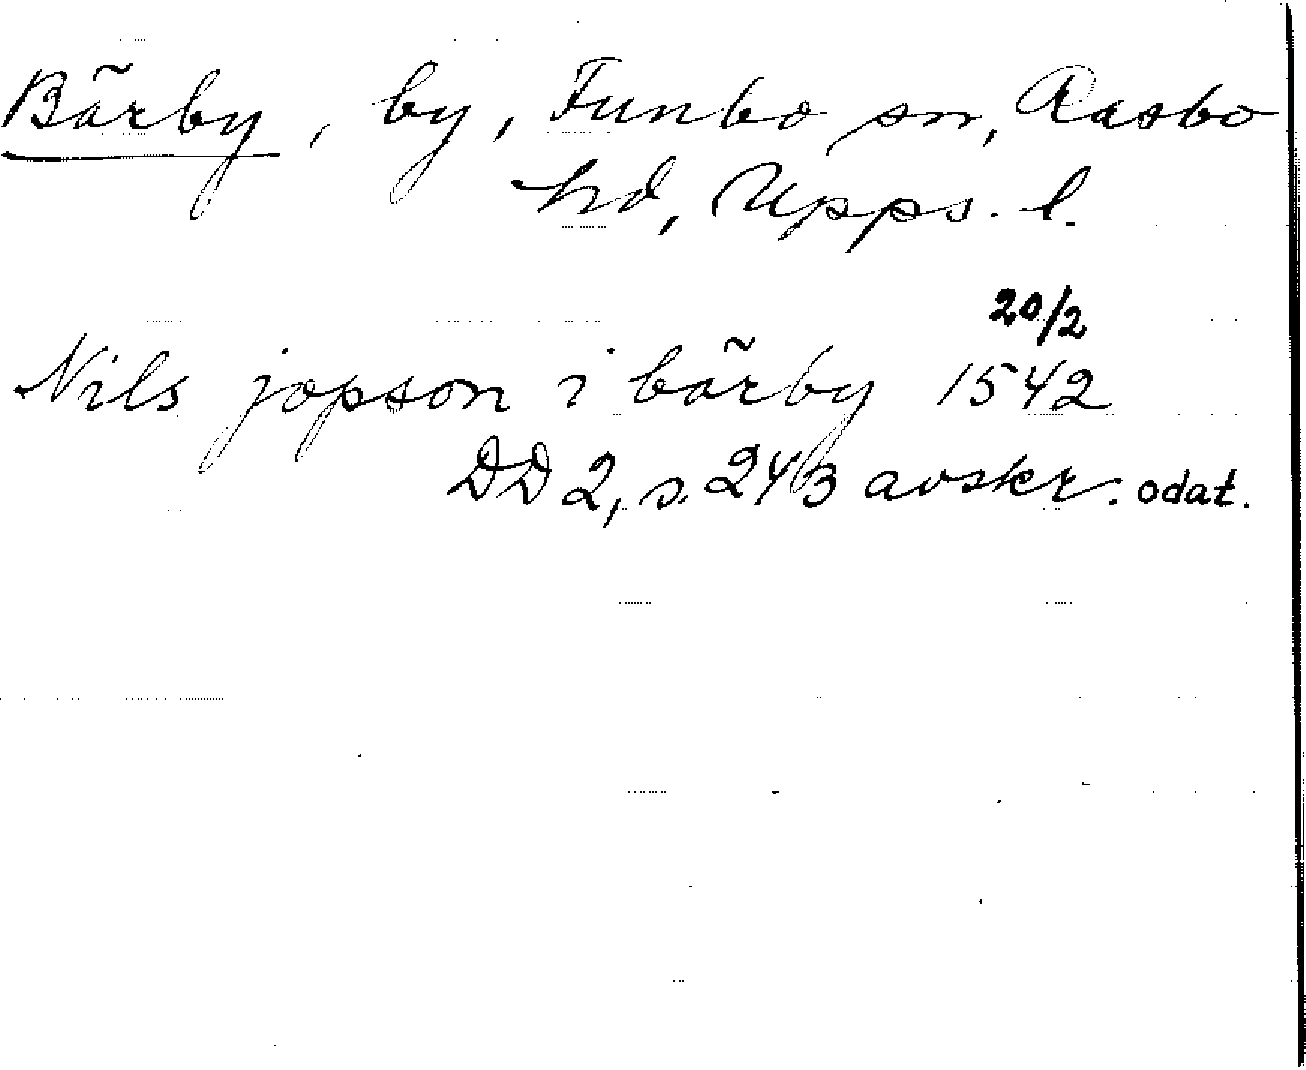 Bärby, by, Funbo sn, Rasbo
hd, Upps. l.
20/2
Nils jopson i bärby 1542
DD 2, s. 243 avskr. odat.